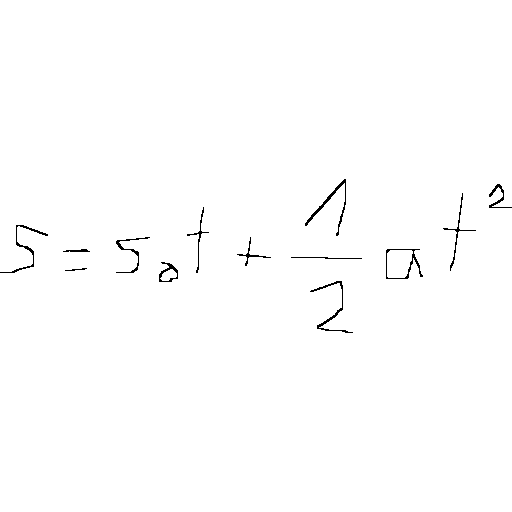 s = s₀t + \frac{1}{2} at²